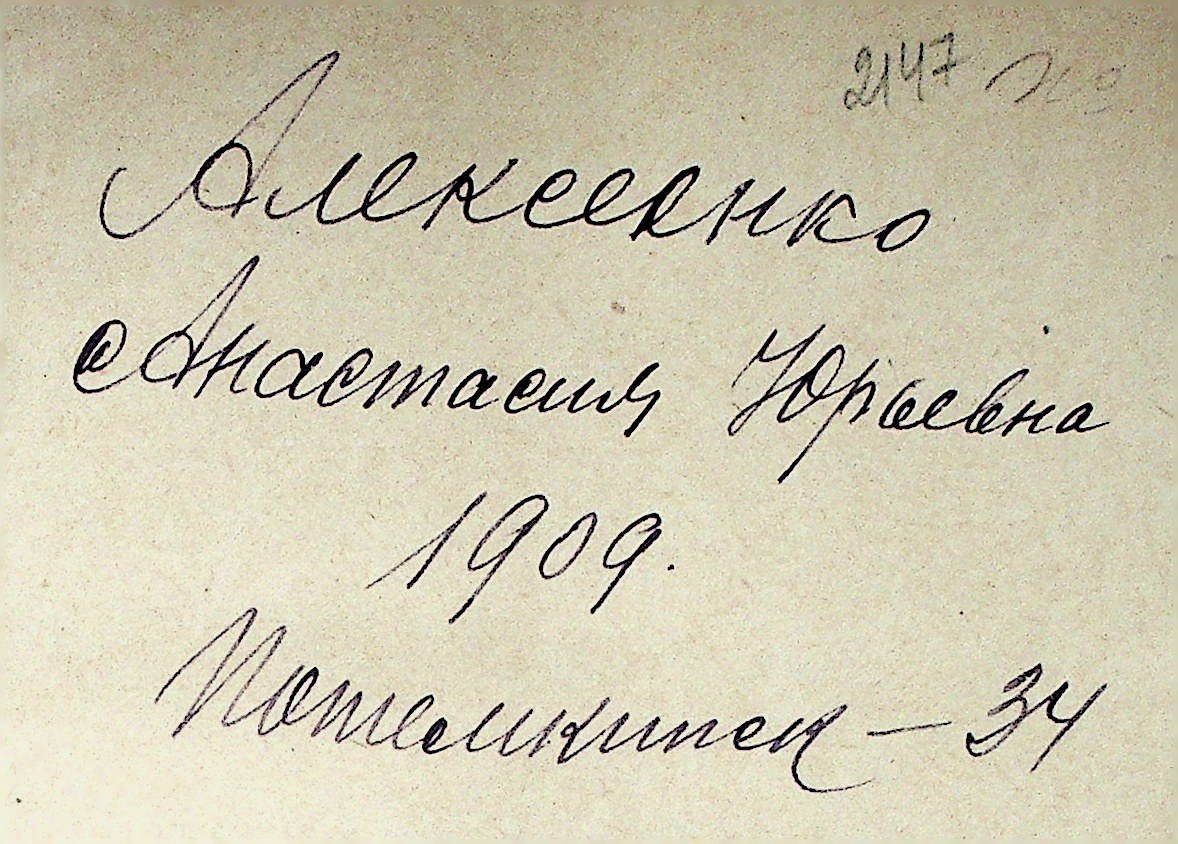 2147
Алексеенко
Анастасия Юрьевна
1909.
Потемкинск – 34